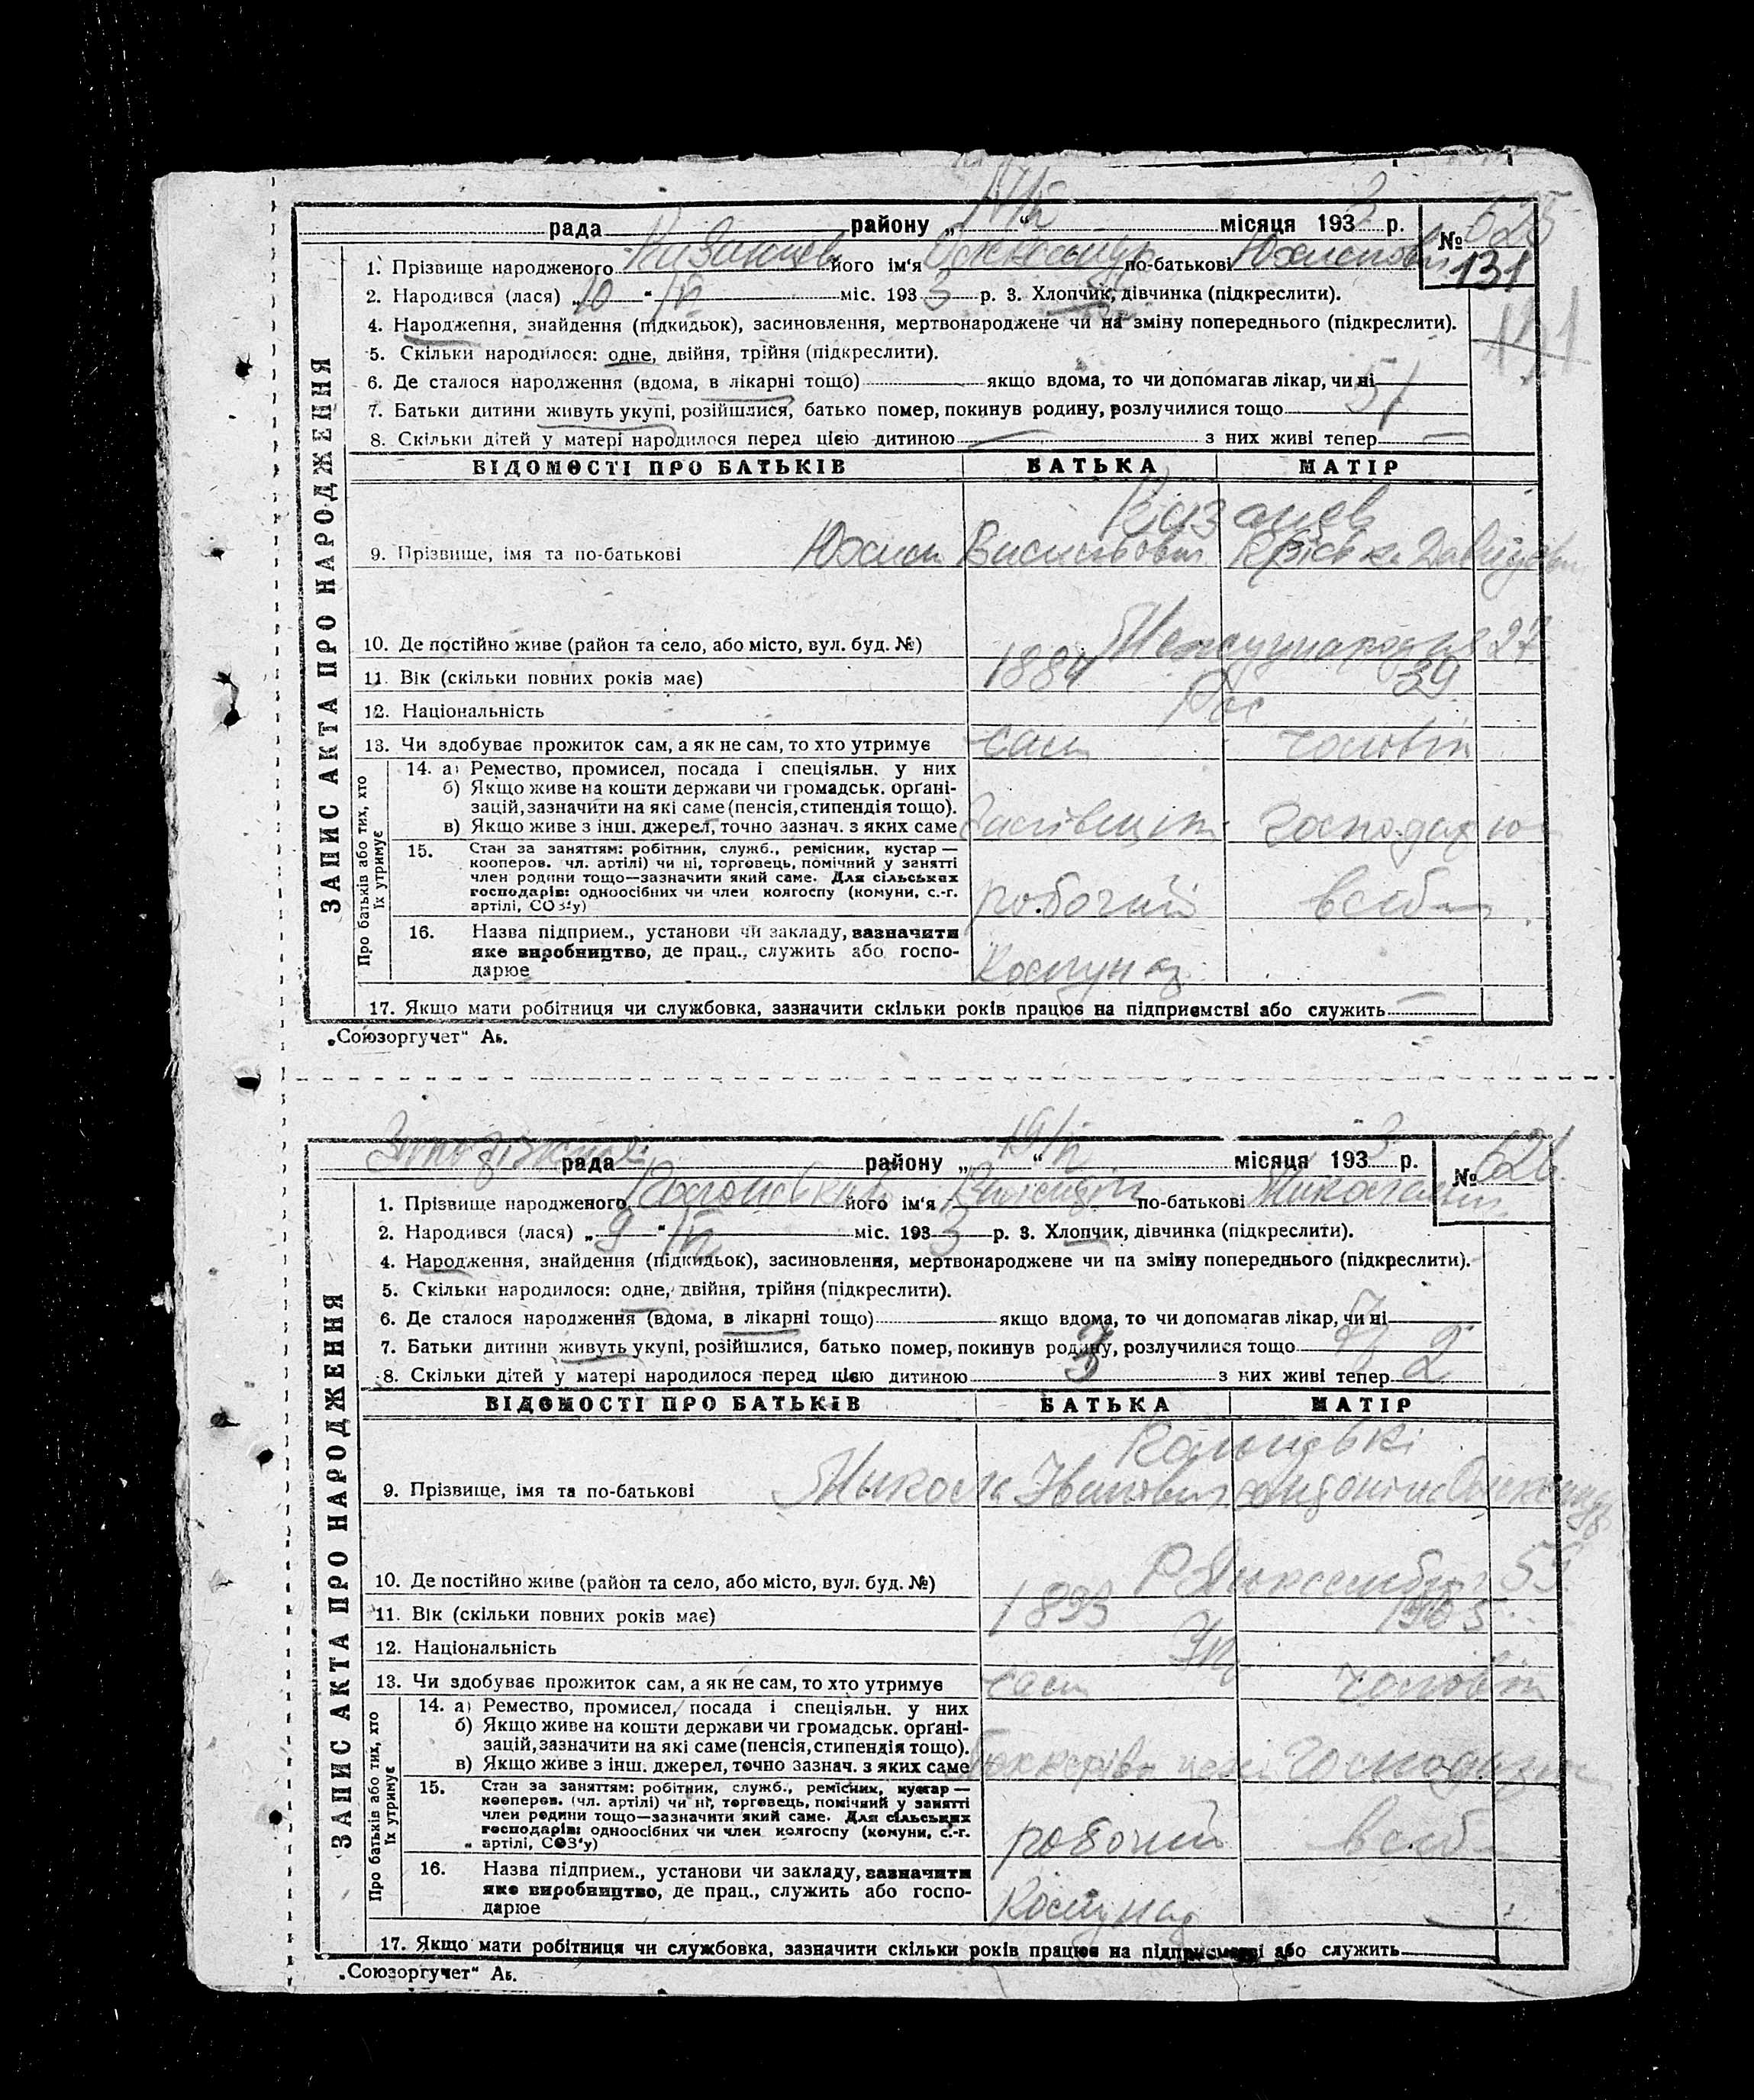 рада района „ “ місяця 1933 р. № 625
1. Прізвище народженого Казанцев його ім'я Олександр по-батькові Юхимович 131
2. Народився (лася) „10“ IV міс. 1933 р. 3. Хлопчик, дівчинка (підкреслити).
4. Народження, знайдення (підкидьок), засиновлення, мертвонароджене чи на зміну попереднього (підкреслити).
5. Скільки народилося: одне, двійня, трійня (підкреслити).
6. Де сталося народження (вдома, в лікарні тощо) якщо вдома, то чи допомагав лікар, чи ні
7. Батьки дитини живуть укупі, розійшлися, батько помер, покинув родину, розлучилися тощо 51
8. Скільки дітей у матері народилося перед цією дитиною — з них живі тепер —
ЗАПИС АКТА ПРО НАРОДЖЕННЯ
ВІДОМОСТІ ПРО БАТЬКІВ БАТЬКА МАТІР
9. Прізвище, імя та по-батькові Юхим
10. Де постійно живе (район та село, або місто, вул. буд. №) 27
11. Вік (скільки повних років має) 1884 39
12. Національність Рос
13. Чи здобуває прожиток сам, а як не сам, то хто утримує сам чоловік
Про батьків або тих, хто їх утримує
14. а) Ремество, промисел, посада і спеціяльн. у них
б) Якщо живе на кошти держави чи громадськ. орґані-
зацій, зазначити на які саме (пенсія, стипендія тощо).
в) Якщо живе з інш. джерел, точно зазнач. з яких саме
15. Стан за заняттям: робітник, служб., ремісник, кустар —
кооперов. (чл. артілі) чи ні, торговець, помічний у занятті
член родини тощо—зазначити який саме. Для сільських
господарів: одноосібних чи член колгоспу (комуни, с.-г.
артілі, СОЗ'у) робочий
16. Назва підприєм., установи чи закладу, зазначити
яке виробництво, де прац., служить або госпо-
дарює Комунгз
17. Якщо мати робітниця чи службовка, зазначити скільки років працює на підприємстві або служить —
„Союзоргучет“ Аб.
рада району „ “ місяця 1933 р. № 626
1. Прізвище народженого його ім'я по-батькові Миколаєвич
2. Народився (лася) „9“ IV міс. 1933 р. 3. Хлопчик, дівчинка (підкреслити).
4. Народження, знайдення (підкидьок), засиновлення, мертвонароджене чи на зміну попереднього (підкреслити).
5. Скільки народилося: одне, двійня, трійня (підкреслити).
6. Де сталося народження (вдома, в лікарні тощо) якщо вдома, то чи допомагав лікар, чи ні
7. Батьки дитини живуть укупі, розійшлися, батько помер, покинув родину, розлучилися тощо
8. Скільки дітей у матері народилося перед цією дитиною 3 з них живі тепер 2
ЗАПИС АКТА ПРО НАРОДЖЕННЯ
ВІДОМОСТІ ПРО БАТЬКІВ БАТЬКА МАТІР
9. Прізвище, імя та по-батькові Микола Іванович
10. Де постійно живе (район та село, або місто, вул. буд. №) Р. Люксембург
11. Вік (скільки повних років має) 1893 1905
12. Національність Ук
13. Чи здобуває прожиток сам, а як не сам, то хто утримує сам чоловік
Про батьків або тих, хто їх утримує
14. а) Ремество, промисел, посада і спеціяльн. у них
б) Якщо живе на кошти держави чи громадськ. орґані-
зацій, зазначити на які саме (пенсія, стипендія тощо).
в) Якщо живе з інш. джерел, точно зазнач. з яких саме
15. Стан за заняттям: робітник, служб., ремісник, кустар —
кооперов. (чл. артілі) чи ні, торговець, помічний у занятті
член родини тощо—зазначити який саме. Для сільських
господарів: одноосібних чи член колгоспу (комуни, с.-г.
артілі, СОЗ'у) робочий
16. Назва підприєм., установи чи закладу, зазначити
яке виробництво, де прац., служить або госпо-
дарює
17. Якщо мати робітниця чи службовка, зазначити скільки років працює на підприємстві або служить
„Союзоргучет“ Аб.